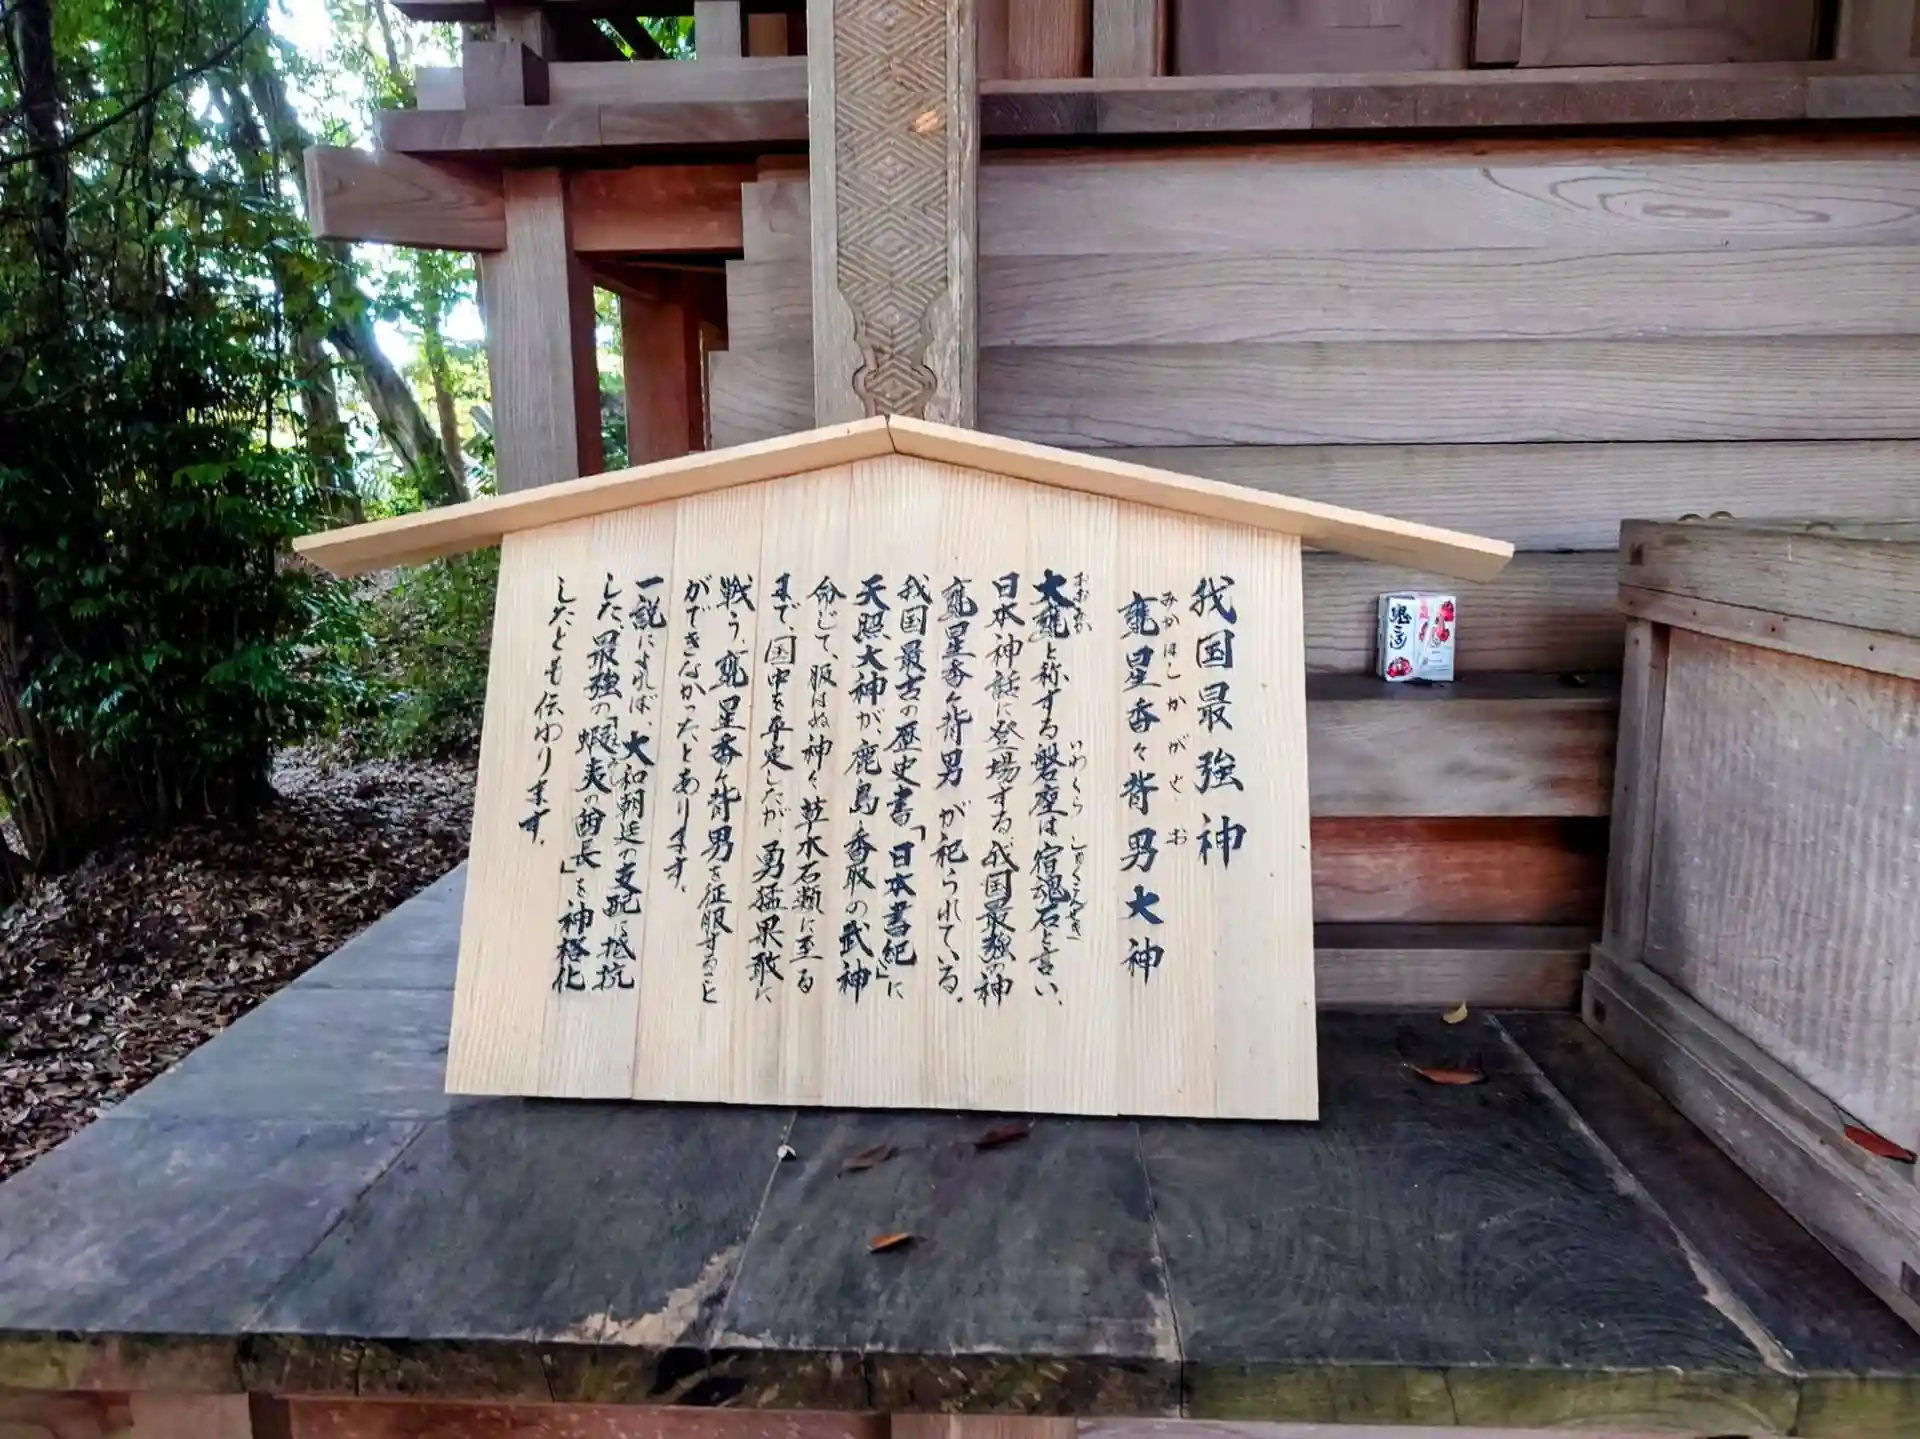 我国最強神
甕星香々背男大神
みかほしかがせお
大甕と称する磐座は宿魂石と言い、
おおみか
いわくら
しゅくこんせき
日本神話に登場する、我国最強の神
甕星香々背男が祀られている。
我国最古の歴史書「日本書紀」に
天照大神が、鹿島香取の武神
命じて、服はぬ神々草木石類に至る
まで、国中を平定したが、勇猛果敢に
戦う、甕星香々背男を征服すること
ができなかったとあります。
一説によれば、大和朝廷の支配に抵抗
した、最強の「蝦夷の酋長」を神格化
したとも伝わります。